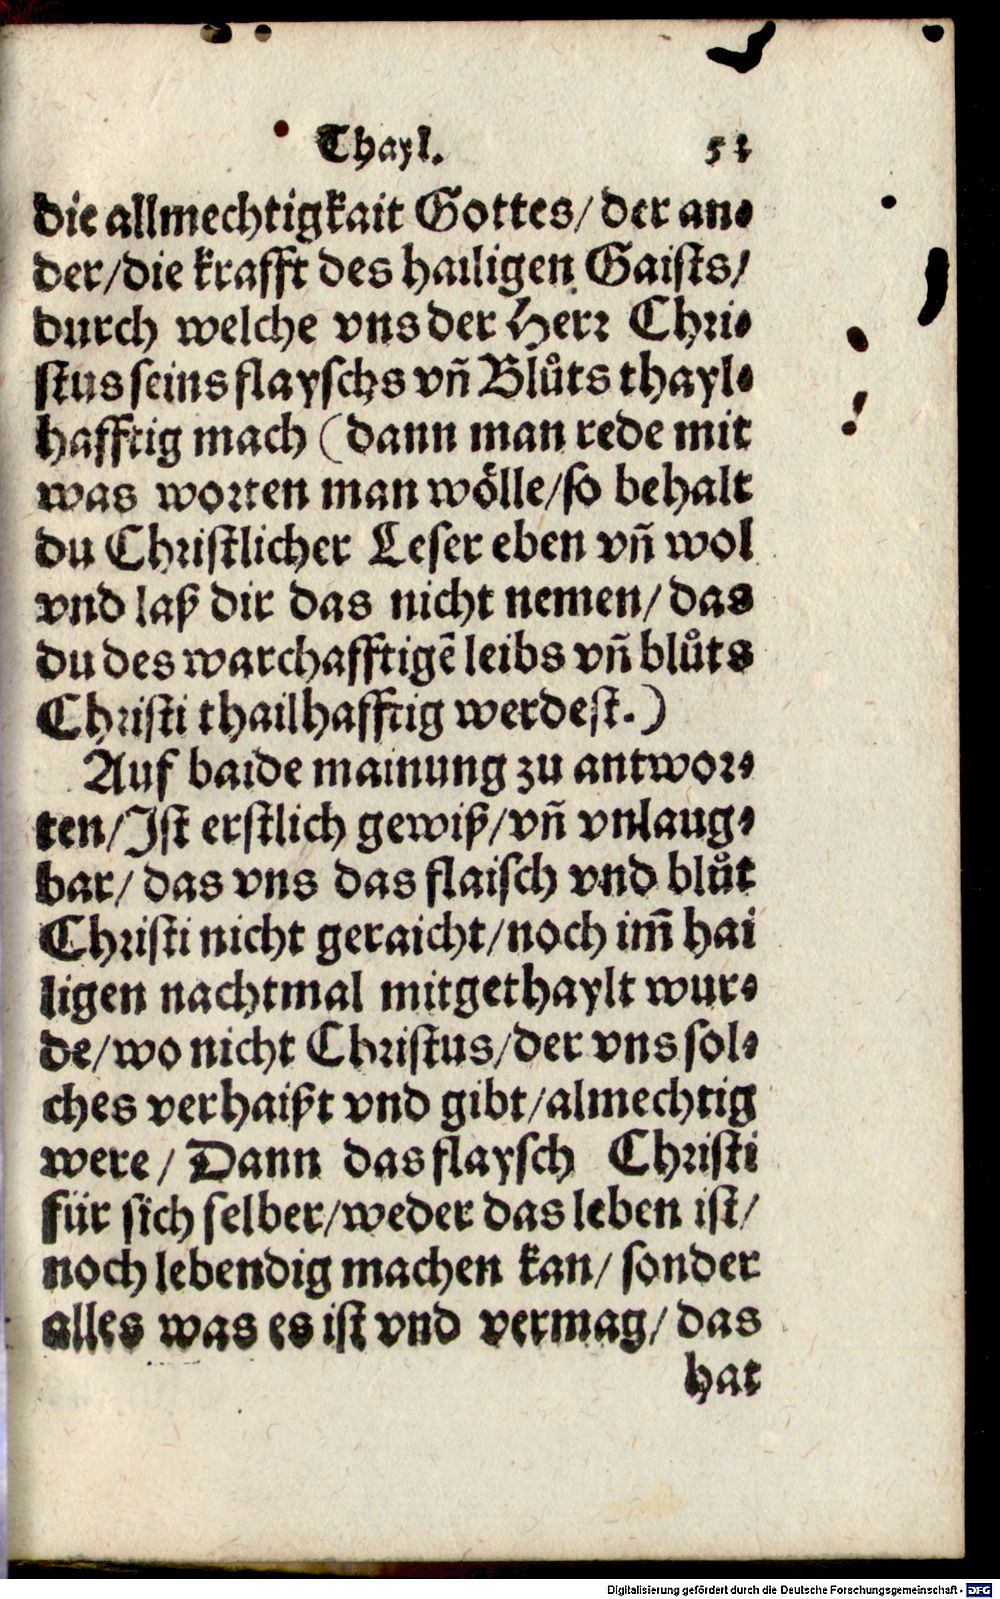 Thayl. 52
die allmechtigkait Gottes/ der an⸗
der/die krafft des hailigen Gaists/
durch welche vns der Herr Chri⸗
stus seins flayschs vñ Blůts thayl⸗
hafftig mach (dann man rede mit
was worten man wölle/so behalt
du Christlicher Leser eben vñ wol
vnd laß dir das nicht nemen/ das
du des warhafftigē leibs vñ blůts
Christi thailhafftig werdest.)
Auf baide mainung zu antwor⸗
ten/Ist erstlich gewiß/vñ vnlaug⸗
bar/ das vns das flaisch vnd blůt
Christi nicht geraicht/noch im̃ hai
ligen nachtmal mitgethaylt wur⸗
de/wo nicht Christus/der vns sol⸗
ches verhaißt vnd gibt/almechtig
were/ Dann das flaysch Christi
für sich selber/weder das leben ist/
noch lebendig machen kan/ sonder
alles was es ist vnd vermag/ das
hat
Digitalisierung gefördert durch die Deutsche Forschungsgemeinschaft - DFG